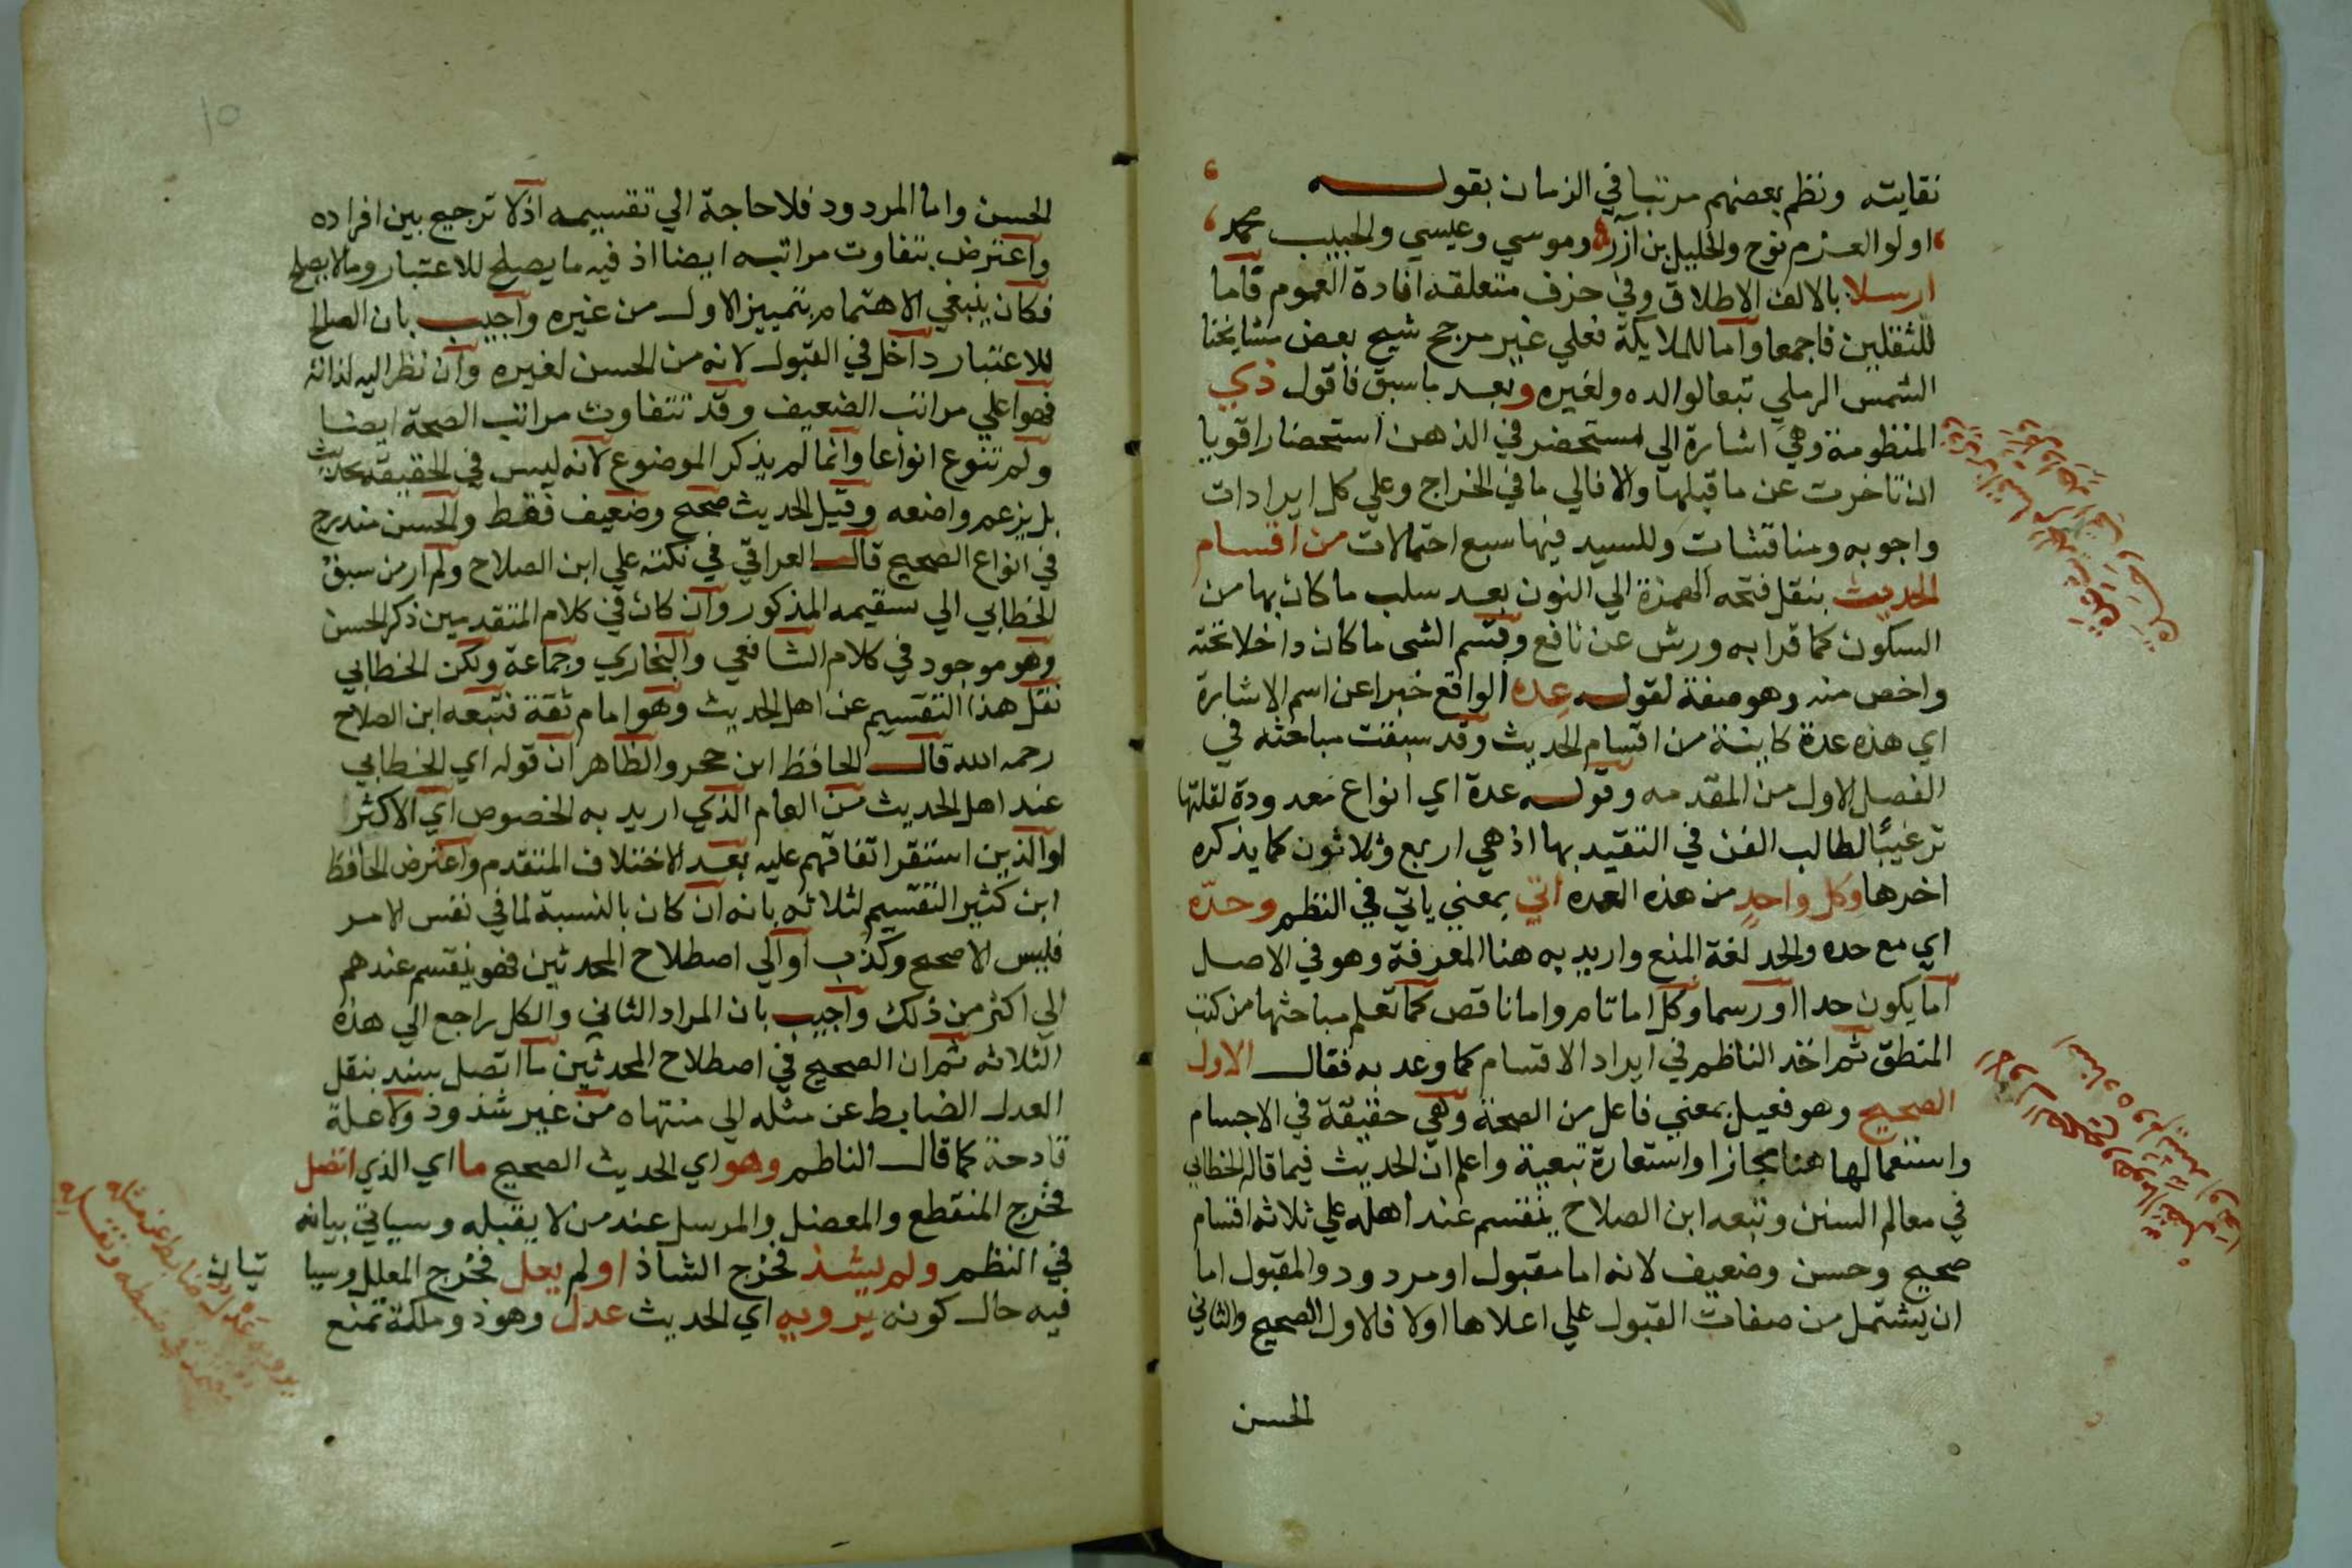 نقايته ونظم بعضهم مرتبا في الزمان بقوله
اولوا العزم نوح والخليل بن آزر وموسي وعيسي والحبيب محمد
ارسلا بالالف الاطلاق وفي حزف متعلقه افادة العموم فاما
للثقلين فاجمعا واما للملايكة فعلي غير مرجح شيخ بعض مشايخنا
الشمس الرملي تبعا لوالده ولغيره وبعد ما سبق فاقول ذي
المنظومة وهي اشارة الي مستحضر في الذهن استحضارا قويا
ان تاخرت عن ما قبلها والا فالي ما في الخراج وعلي كل ايرادات
واجوبه ومناقشات وللسيد فيها سبع احتمالات من اقسام
الحديث بنقل فتحه الهمزة الي النون بعد سلب ما كان بها من
السكون كما قرا به ورش عن نافع وقسم الشى ما كان داخلا تحته
واخص منه وهو صفة لقوله عده الواقع خبرا عن اسم الاشارة
اي هذه عدة كاينة من اقسام الحديث وقد سبقت مباحثه في
الفصل الاول من المقدمه وقوله عدة اي انواع معدودة لقلتها
ترغيبا لطالب الفن في التقيد بها اذ هي اربع وثلاثون كما يذكره
اخرها وكل واحد من هذه العده اتي بمعني ياتي في النظم وحده
اي مع حده والحد لغة المنع واريد به هنا المعرفة وهو في الاصل
اما يكون حدا او رسما وكل اما تام واما ناقص كما تعلم مباحثها من كتب
المنطق ثم اخذ الناظم في ايراد الاقسام كما وعد به فقال الاول
الصحيح وهو فعيل بمعني فاعل من الصحة وهي حقيقة في الاجسام
واستعمالها هنا مجازا واستعارة تبعية واعلم ان الحديث فيما قاله الخطابي
في معالم السنن وتبعه ابن الصلاح ينقسم عند اهله علي ثلاثه اقسام
صحيح وحسن وضعيف لانه اما مقبول او مردود والمقبول اما
ان يشتمل من صفات القبول علي اعلاها اولا فالاول الصحيح والثاني
الحسن
الحسن واما المردود فلا حاجة الي تقسيمه اذ لا ترجيح بين افراده
واعترض بتفاوت مراتبه ايضا اذ فيه ما يصلح للاعتبار وما لا يصلح
فكان ينبغي الاهتمام بتمييز الاول من غيره واجيب بان الصالح
للاعتبار داخل في القبول لانه من الحسن لغيره وان نظر اليه لذاته
فهو اعلي مراتب الضعيف وقد تتفاوت مراتب الصحة ايضا
ولم تتنوع انواعا وانما لم يذكر الموضوع لانه ليس في الحقيقة بحديث
بل بزعم واضعه وقيل الحديث صحيح وضعيف فقط والحسن مندرج
في انواع الصحيح قال العراقي في نكته علي ابن الصلاح ولم ار من سبق
الخطابي الي تسقيمه المذكور وان كان في كلام المتقدمين ذكر الحسن
وهو موجود في كلام الشافعي والبخاري وجماعة ولكن الخطابي
نقل هذا التقسيم عن اهل الحديث وهو امام ثقة فتبعه ابن الصلاح
رحمه الله قال الحافظ ابن حجر والظاهر ان قوله اي الخطابي
عند اهل الحديث من العام الذي اريد به الخصوص اي الاكثر
او الذين استقر اتفاقهم عليه بعد الاختلاف المتقدم واعترض الحافظ
ابن كثير التقسيم لثلاثه بانه ان كان بالنسبة لما في نفس الامر
فليس الا صحيح وكذب او الي اصطلاح المحدثين فهو ينقسم عندهم
الي اكثر من ذلك واجيب بان المراد الثاني والكل راجع الي هذه
الثلاثه ثم ان الصحيح في اصطلاح المحدثين ما اتصل سنده بنقل
العدل الضابط عن مثله الي منتهاه من غير شذوذ ولا علة
قادحة كما قال الناظم وهو اي الحديث الصحيح ما اي الذي اتصل
فخرج المنقطع والمعضل والمرسل عند من لا يقبله وسياتي بيانه
في النظم ولم يشذ فخرج الشاذ او لم يعل فخرج المعلل وسيا تيان
فيه حال كونه يرويه اي الحديث عدل وهو ذو ملكة تمنع